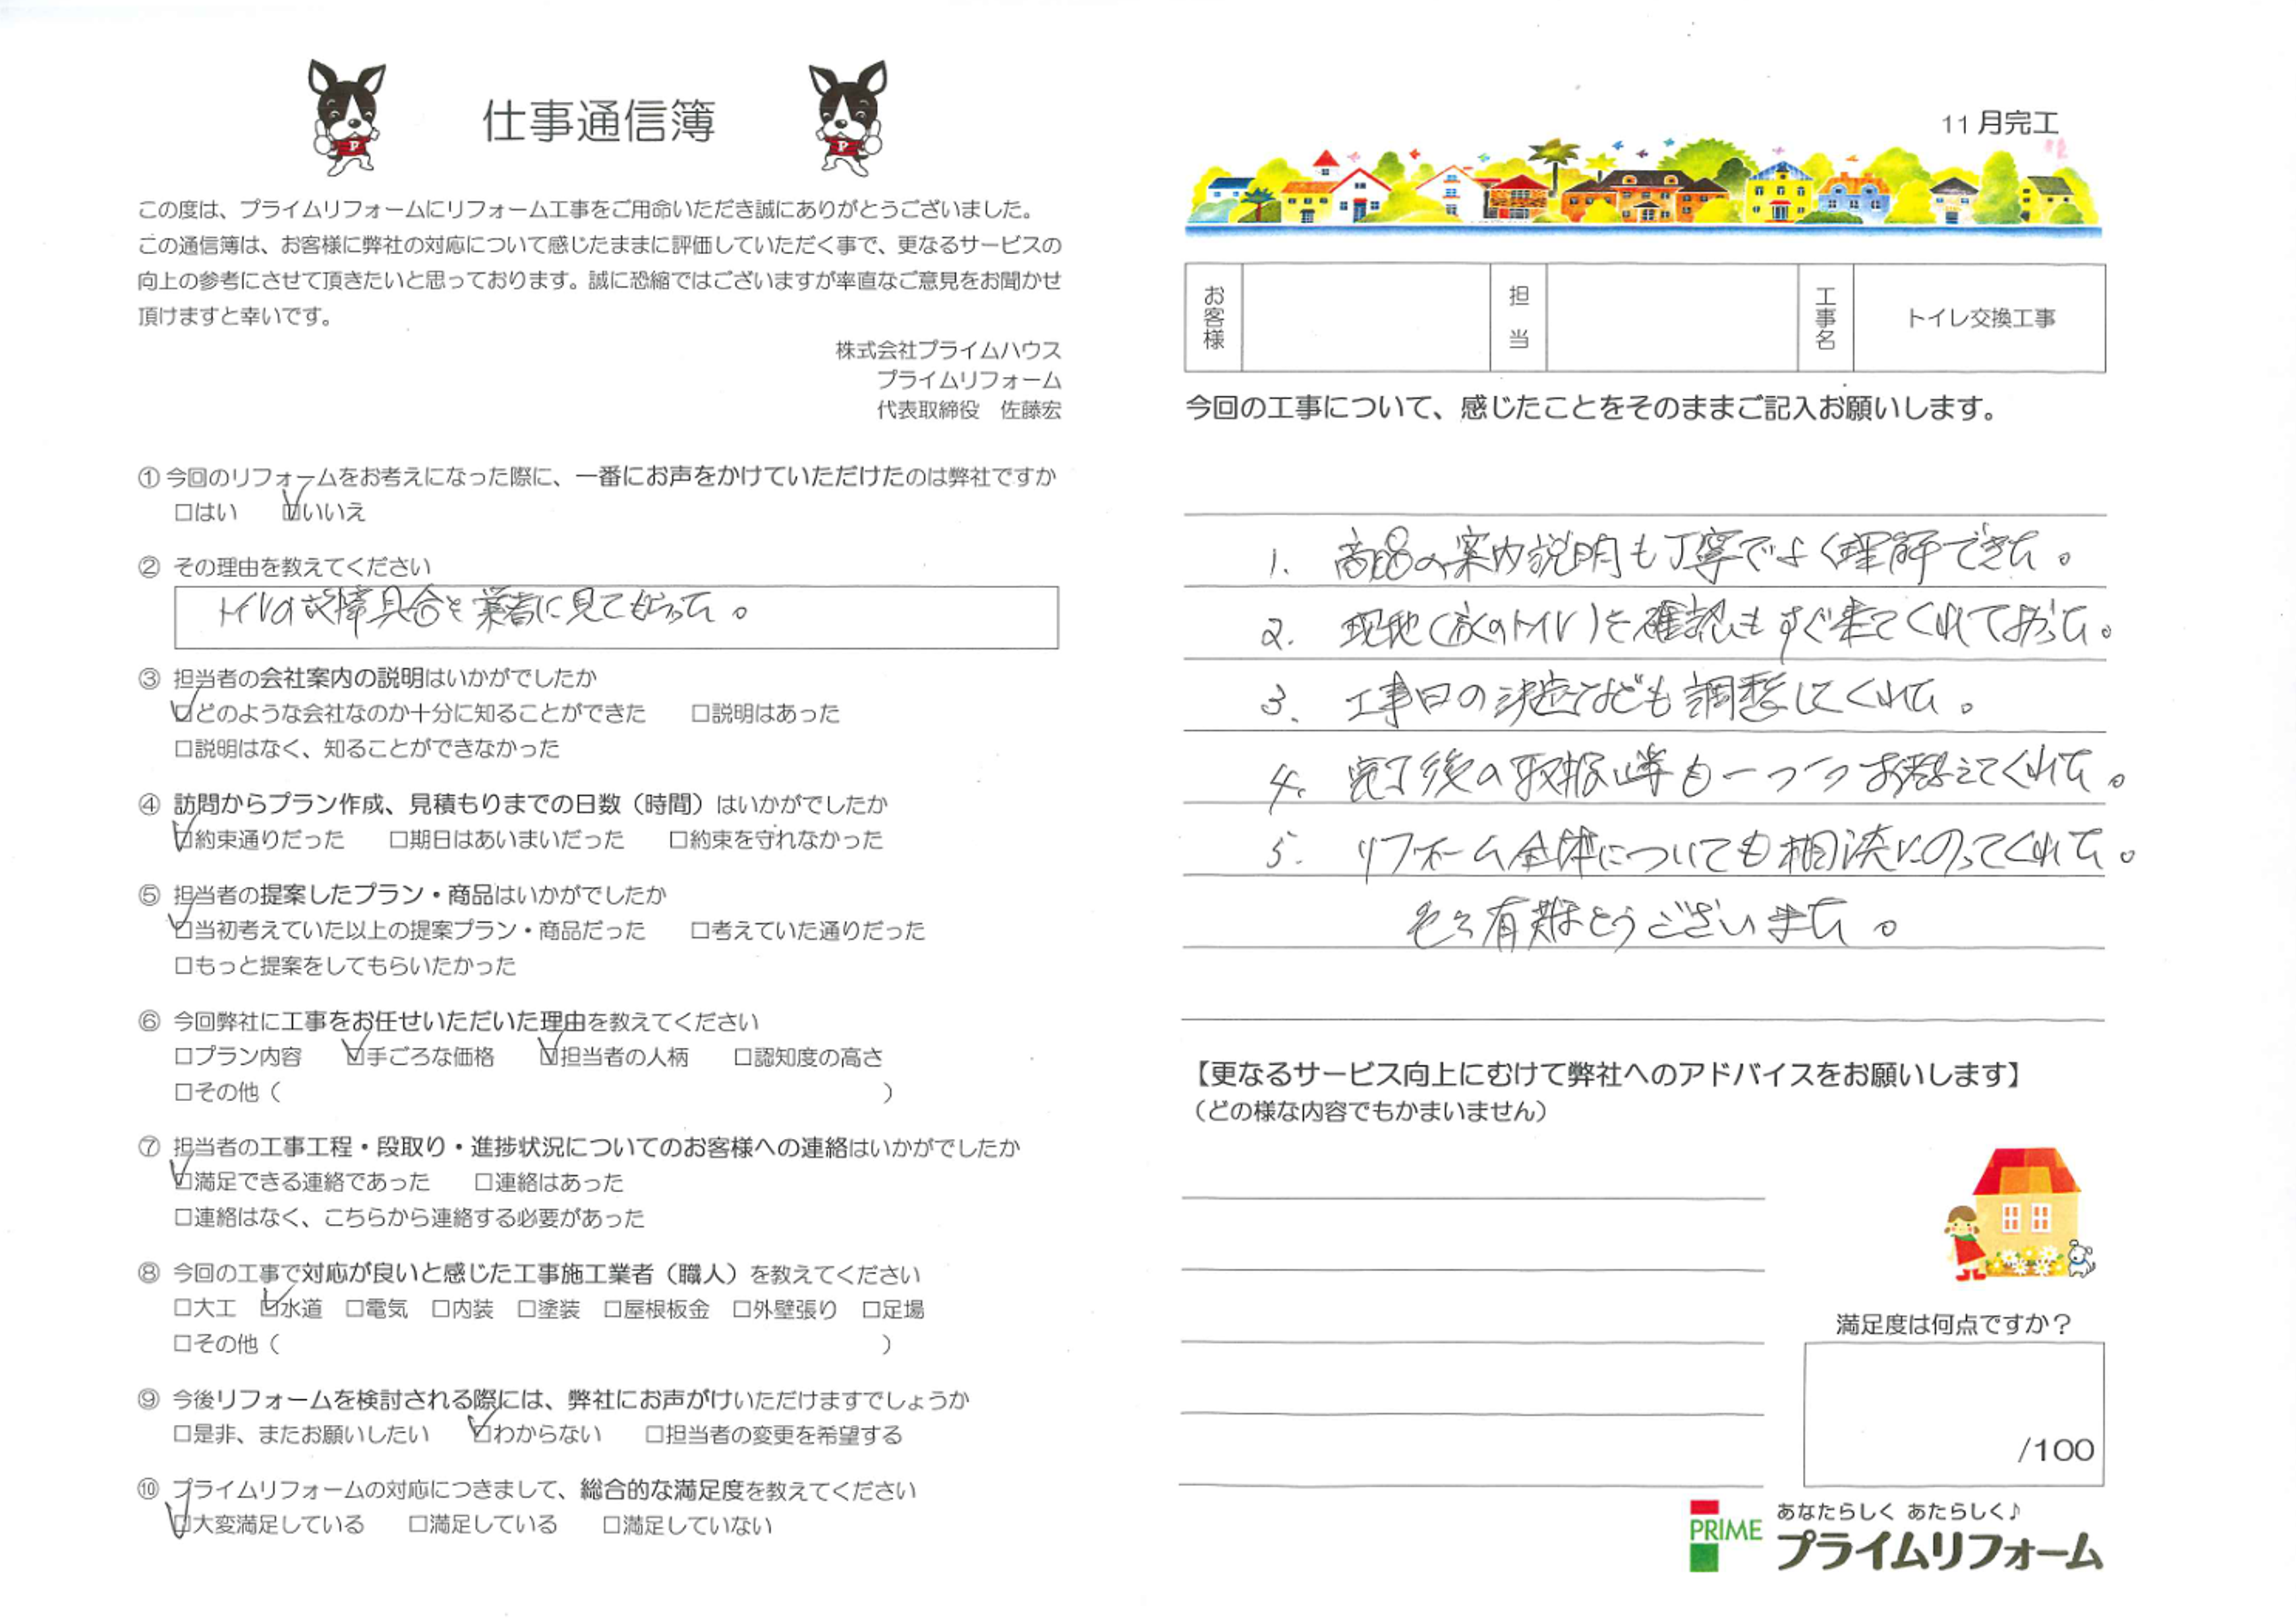 仕事通信簿
この度は、プライムリフォームにリフォーム工事をご用命いただき誠にありがとうございました。
この通信簿は、お客様に弊社の対応について感じたままに評価していただく事で、更なるサービスの
向上の参考にさせて頂きたいと思っております。誠に恐縮ではございますが率直なご意見をお聞かせ
頂けますと幸いです。
株式会社プライムハウス
プライムリフォーム
代表取締役 佐藤宏
① 今回のリフォームをお考えになった際に、一番にお声をかけていただけたのは弊社ですか
□はい ☑いいえ
② その理由を教えてください
トイレの故障具合を業者に見てもらった。
③ 担当者の会社案内の説明はいかがでしたか
☑どのような会社なのか十分に知ることができた □説明はあった
□説明はなく、知ることができなかった
④ 訪問からプラン作成、見積もりまでの日数（時間）はいかがでしたか
☑約束通りだった □期日はあいまいだった □約束を守れなかった
⑤ 担当者の提案したプラン・商品はいかがでしたか
☑当初考えていた以上の提案プラン・商品だった □考えていた通りだった
□もっと提案をしてもらいたかった
⑥ 今回弊社に工事をお任せいただいた理由を教えてください
□プラン内容 ☑手ごろな価格 ☑担当者の人柄 □認知度の高さ
□その他（ ）
⑦ 担当者の工事工程・段取り・進捗状況についてのお客様への連絡はいかがでしたか
☑満足できる連絡であった □連絡はあった
□連絡はなく、こちらから連絡する必要があった
⑧ 今回の工事で対応が良いと感じた工事施工業者（職人）を教えてください
□大工 ☑水道 □電気 □内装 □塗装 □屋根板金 □外壁張り □足場
□その他（ ）
⑨ 今後リフォームを検討される際には、弊社にお声がけいただけますでしょうか
□是非、またお願いしたい ☑わからない □担当者の変更を希望する
⑩ プライムリフォームの対応につきまして、総合的な満足度を教えてください
☑大変満足している □満足している □満足していない
11月完工
お客様 担当 工事名 トイレ交換工事
今回の工事について、感じたことをそのままご記入お願いします。
1. 商品の案内説明も丁寧でよく理解できた。
2. 現地（家のトイレ）を確認もすぐ来てくれて
3. 工事日の決定なども調整してくれた。
4. 完了後の取扱い等も一つ一つお教えてくれた。
5. リフォーム全体についても相談にのってくれた。
色々有難とうございました。
【更なるサービス向上にむけて弊社へのアドバイスをお願いします】
（どの様な内容でもかまいません）
満足度は何点ですか？
/100
PRIME
あなたらしく あたらしく♪
プライムリフォーム